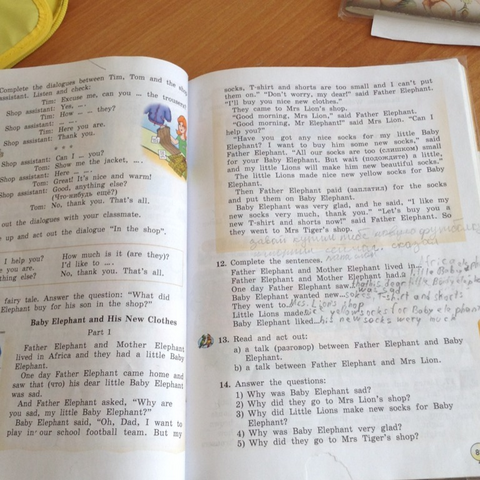 Complete the dialogues between Tim, Tom and the shop
assistant. Listen and check:
Tim: Excuse me, can you ... the trousers?
Shop assistant: Yes, ... .
Tim: How ... they?
Shop assistant: ...
Tim: Here you are.
Shop assistant: Thank you.
* * *
Shop assistant: Can I ... you?
Tom: Show me the jacket, ... .
Shop assistant: Here ... .
Tom: Great! It's nice and warm!
Shop assistant: Good, anything else?
(Что-нибудь ещё?)
Tom: No, thank you. That's all.
out the dialogues with your classmate.
up and act out the dialogue "In the shop".
I help you? How much is it (are they)?
you are. I'd like to ... .
else? No, thank you. That's all.
fairy tale. Answer the question: "What did
Elephant buy for his son in the shop?"
Baby Elephant and His New Clothes
Part I
Father Elephant and Mother Elephant
lived in Africa and they had a little Baby
Elephant.
One day Father Elephant came home and
saw that (что) his dear little Baby Elephant
was sad.
And Father Elephant asked, "Why are
you sad, my little Baby Elephant?"
Baby Elephant said, "Oh, Dad, I want to
play in our school football team. But my
socks, T-shirt and shorts are too small and I can't put
them on." "Don't worry, my dear! said Father Elephant.
"I'll buy you nice new clothes."
They came to Mrs Lion's shop.
"Good morning, Mrs Lion," said Father Elephant.
"Good morning, Mr Elephant!" said Mrs Lion. "Can I
help you?"
"Have you got any nice socks for my little Baby
Elephant? I want to buy him some new socks," said
Father Elephant. "All our socks are too (слишком) small
for your Baby Elephant. But wait (подождите) a little,
and my little Lions will make him new beautiful socks."
The little Lions made nice new yellow socks for Baby
Elephant.
Then Father Elephant paid (заплатил) for the socks
and put them on Baby Elephant.
Baby Elephant was very glad, and he said, "I like my
new socks very much, thank you." "Let's buy you a
new T-shirt and shorts now!" said Father Elephant. So
they went to Mrs Tiger's shop.
12. Complete the sentences.
Father Elephant and Mother Elephant lived in Africa
Father Elephant and Mother Elephant had a little Baby
One day Father Elephant saw that his dear little Baby Elephant
Baby Elephant wanted new socks, T-shirt and shorts
They went to Mrs. Lion's
Little Lions made yellow socks for Baby elephant
Baby Elephant liked his new socks very much
13. Read and act out:
a) a talk (разговор) between Father Elephant and Baby
Elephant.
b) a talk between Father Elephant and Mrs Lion.
14. Answer the questions:
1) Why was Baby Elephant sad?
2) Why did they go to Mrs Lion's shop?
3) Why did Little Lions make new socks for Baby
Elephant?
4) Why was Baby Elephant very glad?
5) Why did they go to Mrs Tiger's shop?